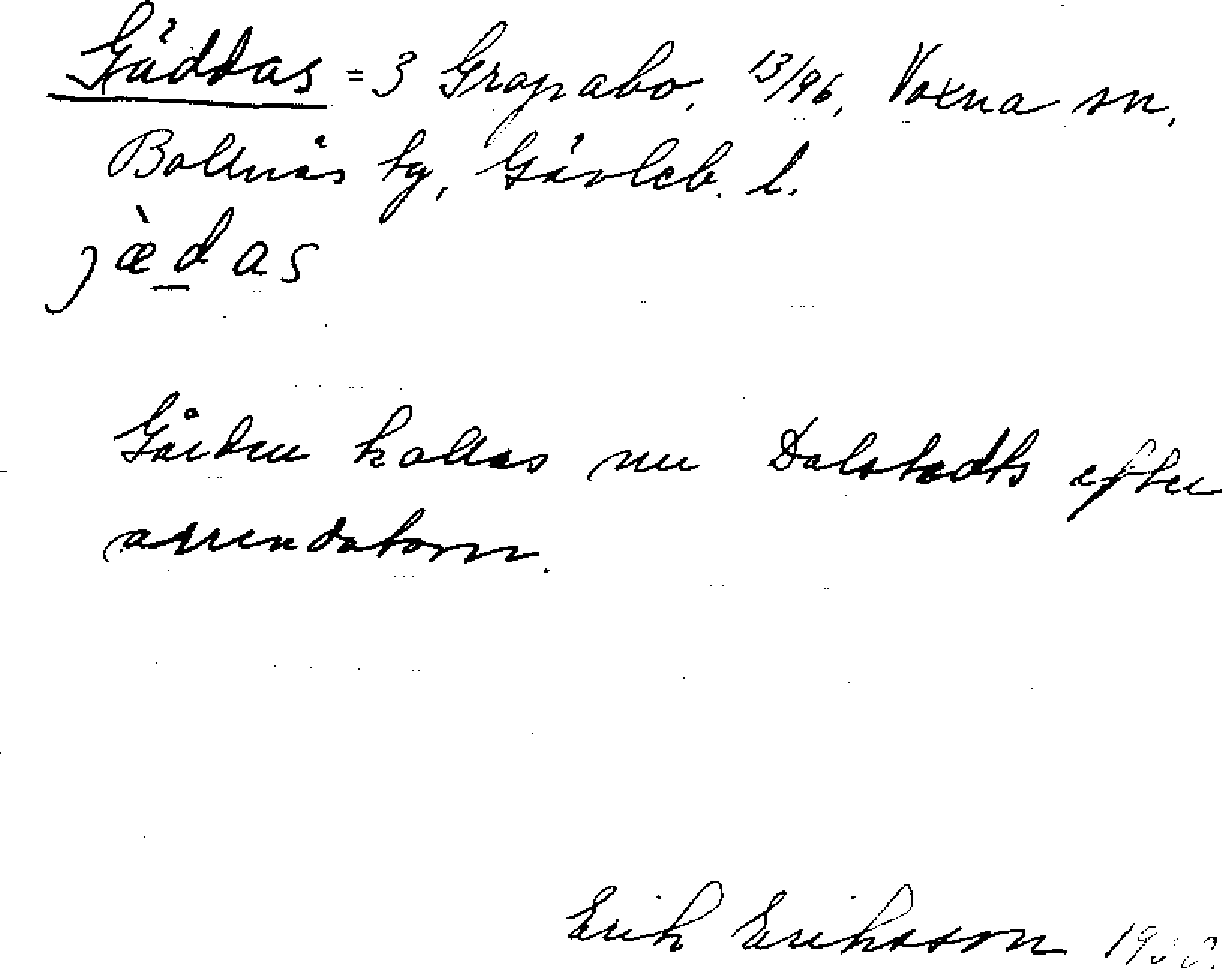 Gäddas = 3 Grapabo, 13/96, Voxna sn,
Bollnäs tg, Gävleb. l.
jæ̀das
Gården kallas nu Dalstedts efter
arrendatorn.
Erik Eriksson